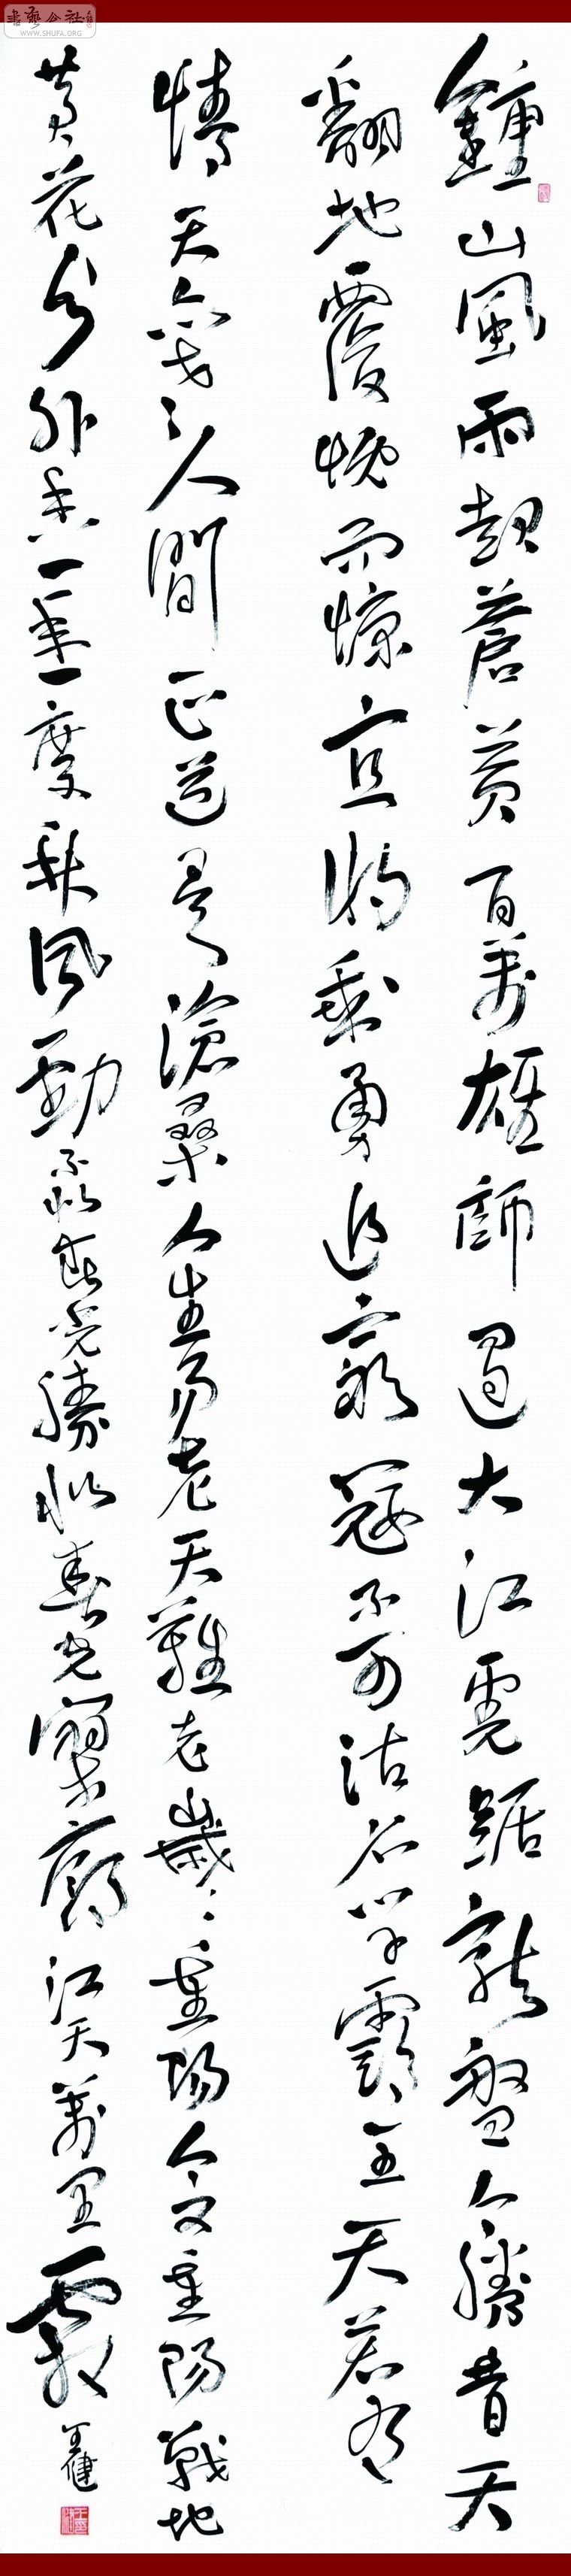 書藝公社
WWW.SHUFA.ORG
鐘山風雨起蒼黃百萬雄師過大江虎踞龍盤今勝昔天
翻地覆慨而慷宜將剩勇追窮寇不可沽名學霸王天若有
情天亦老人間正道是滄桑人生易老天難老歲〻重陽今又重陽戰地
黃花分外香一年一度秋風勁不似春光勝似春光寥廓江天萬里霜
王健